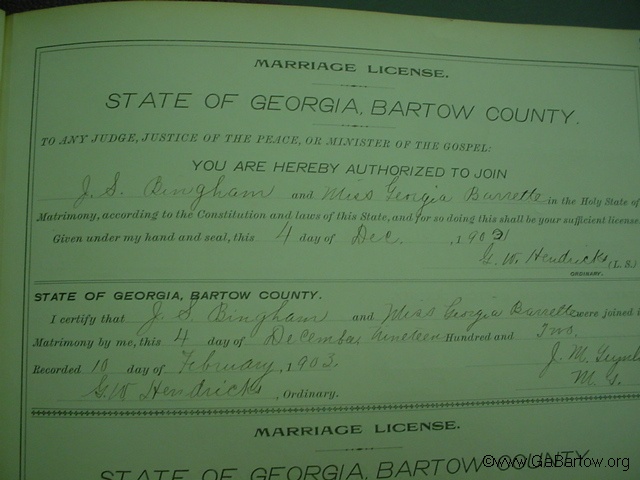 MARRIAGE LICENSE.
STATE OF GEORGIA, BARTOW COUNTY.
TO ANY JUDGE, JUSTICE OF THE PEACE, OR MINISTER OF THE GOSPEL:
YOU ARE HEREBY AUTHORIZED TO JOIN
J. S. Bingham and Miss Georgia Barrette in the Holy State of
Matrimony, according to the Constitution and laws of this State, and for so doing this shall be your sufficient license
Given under my hand and seal, this 4 day of Dec. , 190
G. W. Hendricks (L. S.)
ORDINARY.
STATE OF GEORGIA, BARTOW COUNTY.
I certify that J. S. Bingham and Miss Georgia Barrette were joined i
Matrimony by me, this 4 day of December nineteen Hundred and Two.
Recorded 10 day of February, 1903. J. M.
G. W. Hendricks, Ordinary. M. G.
MARRIAGE LICENSE.
STATE OF GEORGIA, BARTOW COUNTY.
©www.GaBartow.org